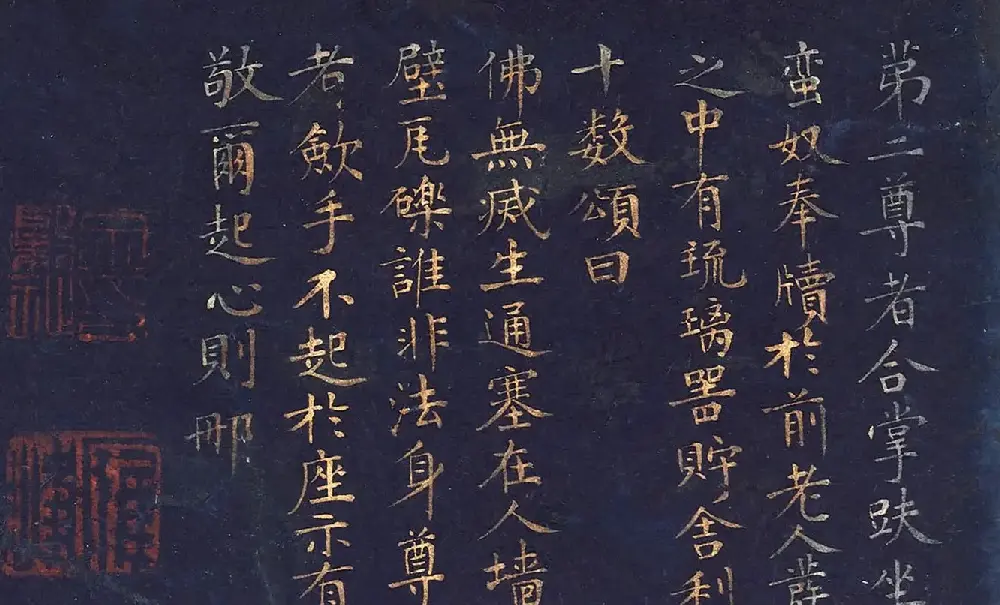 弟二尊者合掌趺坐
蛮奴奉牘於前老人
之中有琉璃器貯舍利
十數頌曰
佛無㓕生通塞在人墙
壁瓦礫誰非法身尊
者歛手不起於座示有
敬爾起心則那